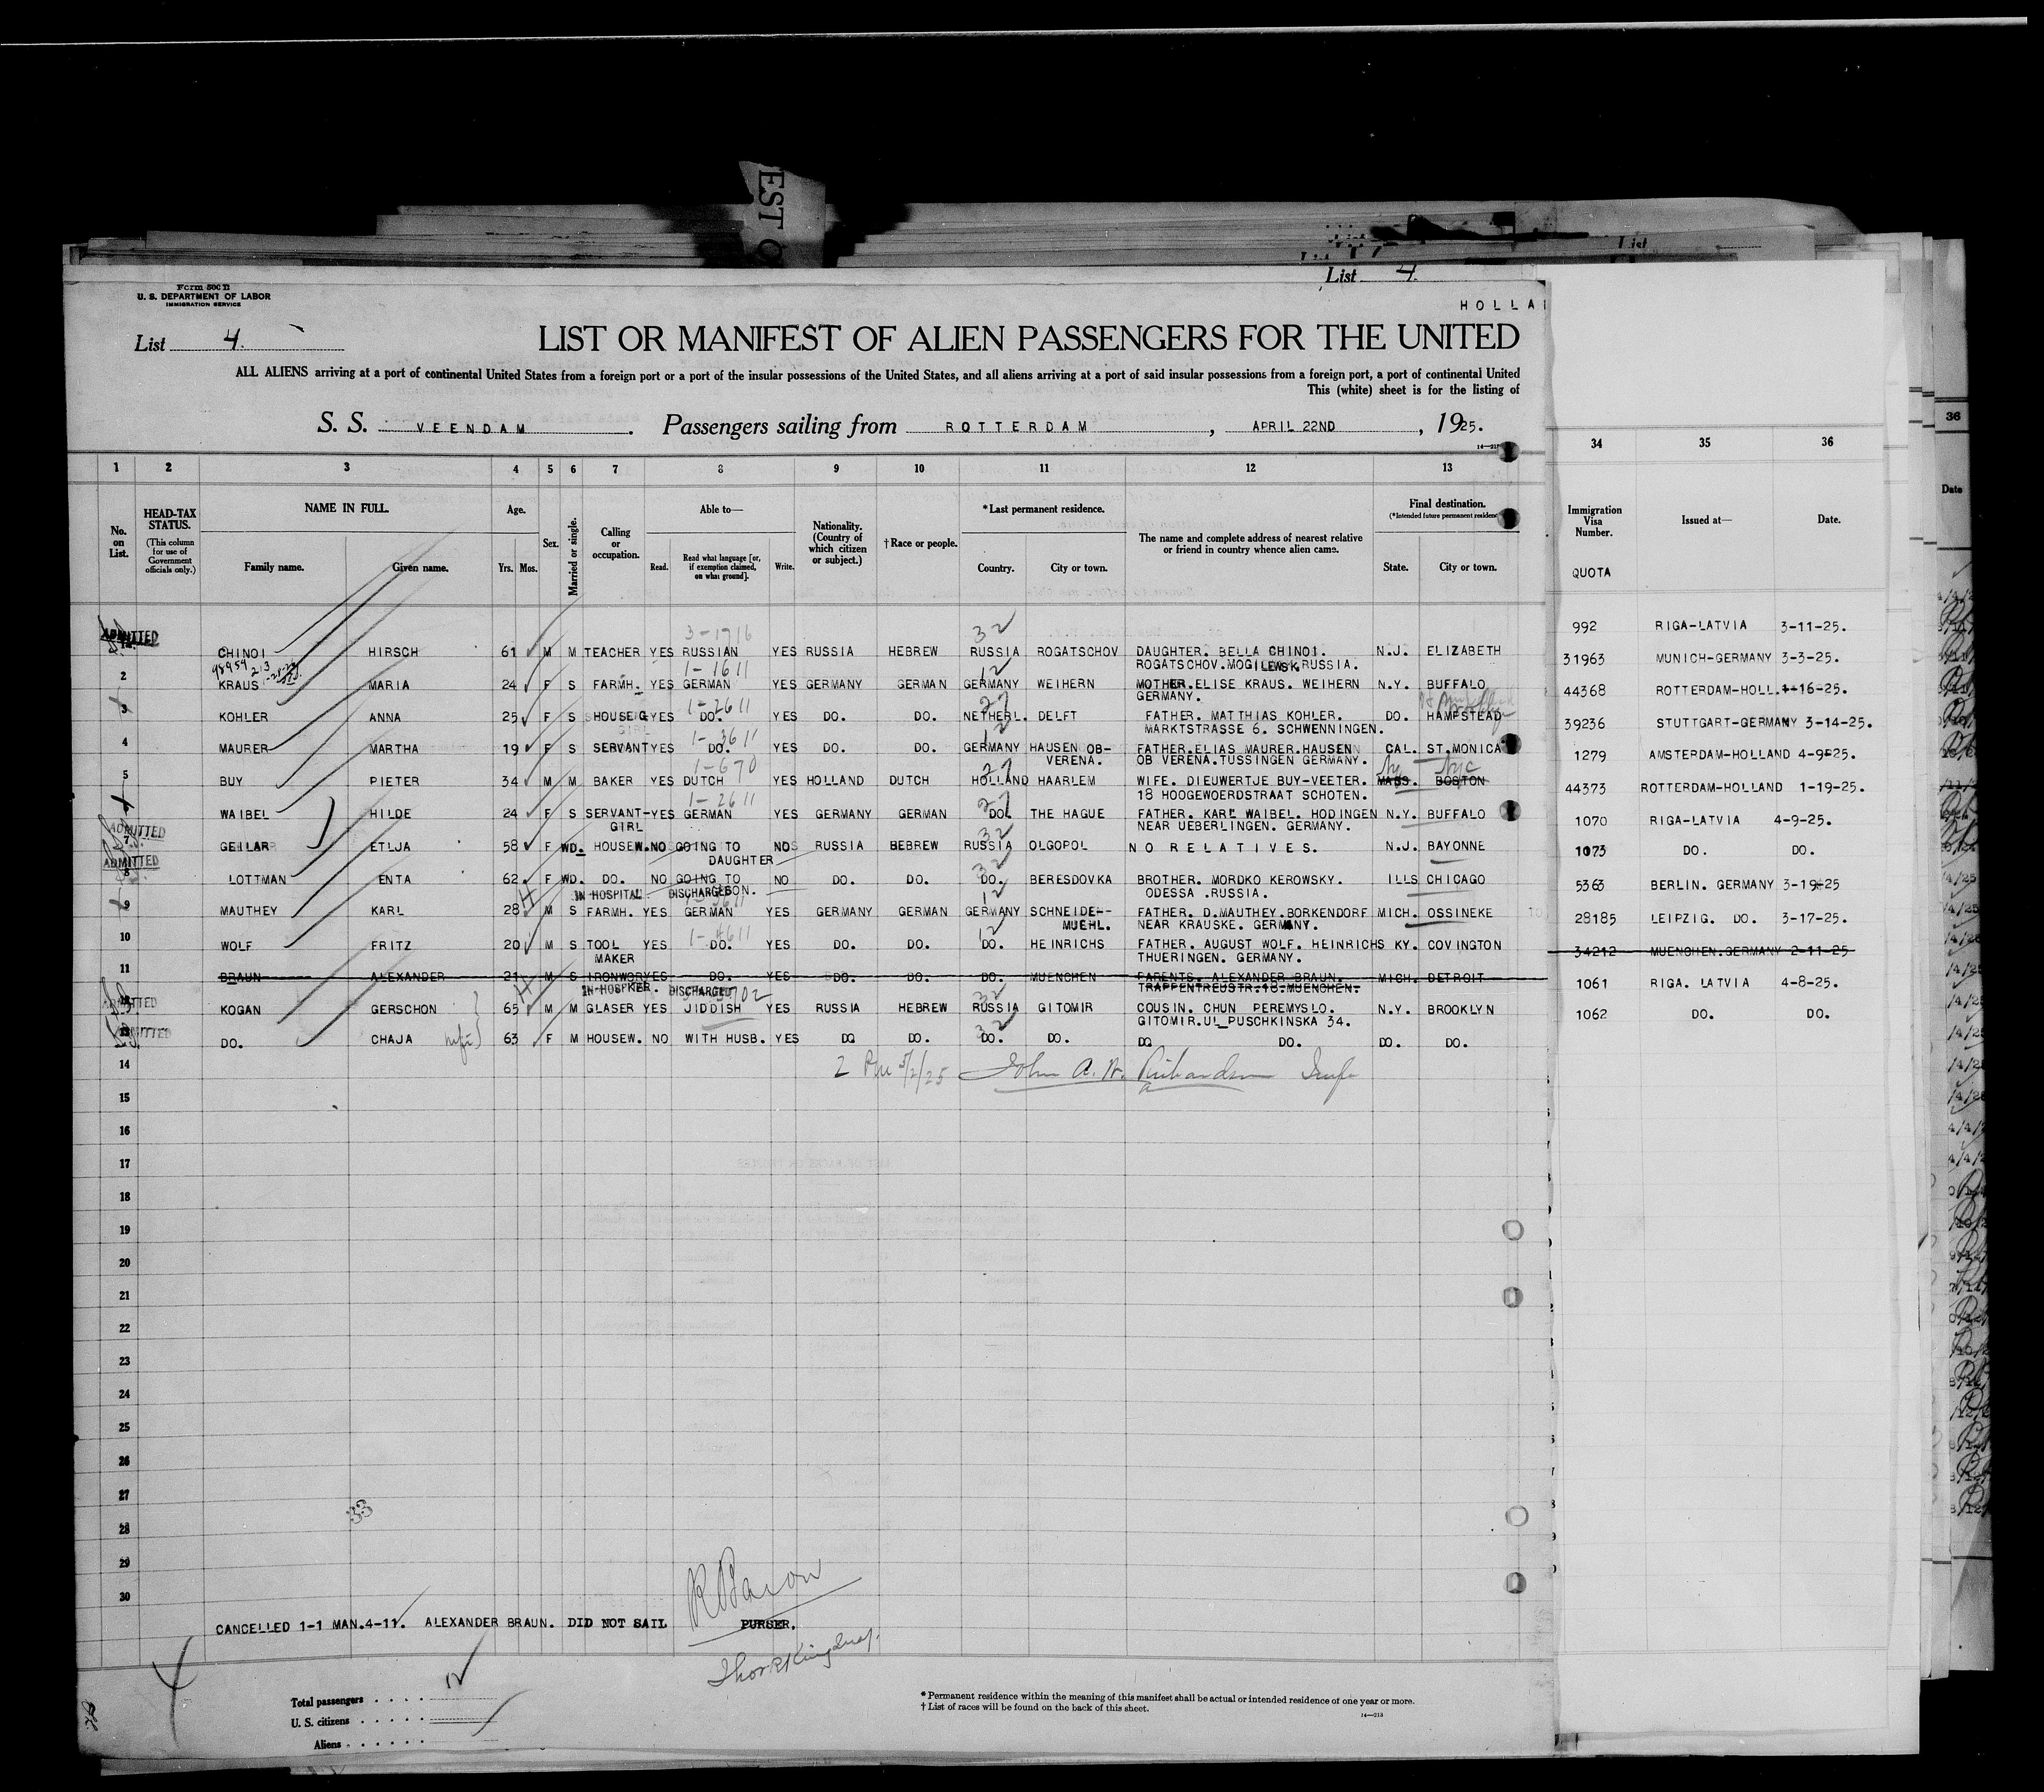 EST O
List
List 4.
Form 500 B
U. S. DEPARTMENT OF LABOR
IMMIGRATION SERVICE
HOLLA
List 4.
LIST OR MANIFEST OF ALIEN PASSENGERS FOR THE UNITED
ALL ALIENS arriving at a port of continental United States from a foreign port or a port of the insular possessions of the United States, and all aliens arriving at a port of said insular possessions from a foreign port, a port of continental United
This (white) sheet is for the listing of
S. S. VEENDAM . Passengers sailing from ROTTERDAM , APRIL 22ND , 1925.
1 2 3 4 5 6 7 8 9 10 11 12 13 34 35 36
No. on List. HEAD-TAX STATUS. (This column for use of Government officials only.) NAME IN FULL. Family name. Given name. Age. Yrs. Mos. Sex. Married or single. Calling or occupation. Able to— Read. Read what language [or, if exemption claimed, on what ground]. Write. Nationality. (Country of which citizen or subject.) †Race or people. *Last permanent residence. Country. City or town. The name and complete address of nearest relative or friend in country whence alien came. Final destination. (*Intended future permanent residence State. City or town. Immigration Visa Number. QUOTA Issued at— Date.
36
Date
ADMITTED 3-1716 32
CHINOI HIRSCH 61 M M TEACHER YES RUSSIAN YES RUSSIA HEBREW RUSSIA ROGATSCHOV DAUGHTER. BELLA CHINOI. N.J. ELIZABETH 992 RIGA-LATVIA 3-11-25.
ROGATSCHOV.MOGILEWSK.RUSSIA.
1-1611 12
2 KRAUS MARIA 24 F S FARMH. YES GERMAN YES GERMANY GERMAN GERMANY WEIHERN MOTHER.ELISE KRAUS. WEIHERN N.Y. BUFFALO 31963 MUNICH-GERMANY 3-3-25.
GERMANY.
1-2611 27
3 KOHLER ANNA 25 F S HOUSE YES DO. YES DO. DO. NETHERL. DELFT FATHER. MATTHIAS KOHLER. DO. HAMPSTEAD 44368 ROTTERDAM-HOLL. 1-16-25.
GIRL MARKTSTRASSE 6. SCHWENNINGEN.
1-3611 12
4 MAURER MARTHA 19 F S SERVANT YES DO. YES DO. DO. GERMANY HAUSEN OB- FATHER.ELIAS MAURER.HAUSEN CAL. ST.MONICA 39236 STUTTGART-GERMANY 3-14-25.
VERENA. OB VERENA.TUSSINGEN GERMANY.
1-670 27 Ny Nyc
5 BUY PIETER 34 M M BAKER YES DUTCH YES HOLLAND DUTCH HOLLAND HAARLEM WIFE. DIEUWERTJE BUY-VEETER. MASS. BOSTON 1279 AMSTERDAM-HOLLAND 4-9-25.
18 HOOGEWOERDSTRAAT SCHOTEN.
1-2611 27
WAIBEL HILDE 24 F S SERVANT- YES GERMAN YES GERMANY GERMAN DO. THE HAGUE FATHER. KARL WAIBEL. HODINGEN N.Y. BUFFALO 44373 ROTTERDAM-HOLLAND 1-19-25.
GIRL NEAR UEBERLINGEN. GERMANY.
ADMITTED 32
7 GEILAR ETLJA 58 F WD. HOUSEW. NO GOING TO NO RUSSIA BEBREW RUSSIA OLGOPOL NO RELATIVES. N.J. BAYONNE 1070 RIGA-LATVIA 4-9-25.
DAUGHTER
ADMITTED 32
8 LOTTMAN ENTA 62 F WD. DO. NO GOING TO NO DO. DO. DO. BERESDOVKA BROTHER. MORDKO KEROWSKY. ILLS CHICAGO 1073 DO. DO.
SON. ODESSA .RUSSIA.
IN HOSPITAL DISCHARGED 12
9 MAUTHEY KARL 28 M S FARMH. YES GERMAN YES GERMANY GERMAN GERMANY SCHNEIDE-- FATHER. D.MAUTHEY.BORKENDORF MICH. OSSINEKE 5363 BERLIN. GERMANY 3-19-25
MUEHL. NEAR KRAUSKE. GERMANY.
1-4611 12
10 WOLF FRITZ 20 M S TOOL YES DO. YES DO. DO. DO. HEINRICHS FATHER. AUGUST WOLF. HEINRICHS KY. COVINGTON 28185 LEIPZIG. DO. 3-17-25.
MAKER THUERINGEN. GERMANY.
11 BRAUN ALEXANDER 21 M S IRONWOR YES DO. YES DO. DO. DO. MUENCHEN PARENTS. ALEXANDER BRAUN. MICH. DETROIT 34212 MUENCHEN.GERMANY 2-11-25
KER. TRAPPENTREUSTR.18.MUENCHEN.
ADMITTED IN HOSP DISCHARGED 32
KOGAN GERSCHON 65 M M GLASER YES JIDDISH YES RUSSIA HEBREW RUSSIA GITOMIR COUSIN. CHUN PEREMYSLO. N.Y. BROOKLYN 1061 RIGA. LATVIA 4-8-25.
GITOMIR.UL PUSCHKINSKA 34.
ADMITTED 32
DO. CHAJA wife 63 F M HOUSEW. NO WITH HUSB. YES DO DO. DO. DO. DO DO. DO. DO. 1062 DO. DO.
14 5/2/25 John A. W. Richardson
15
16
17
18
19
20
21
22
23
24
25
26
27
33
28
29
30
CANCELLED 1-1 MAN.4-11. ALEXANDER BRAUN. DID NOT SAIL PURSER.
12
Total passengers
U. S. citizens
Aliens
* Permanent residence within the meaning of this manifest shall be actual or intended residence of one year or more.
† List of races will be found on the back of this sheet.
14—213